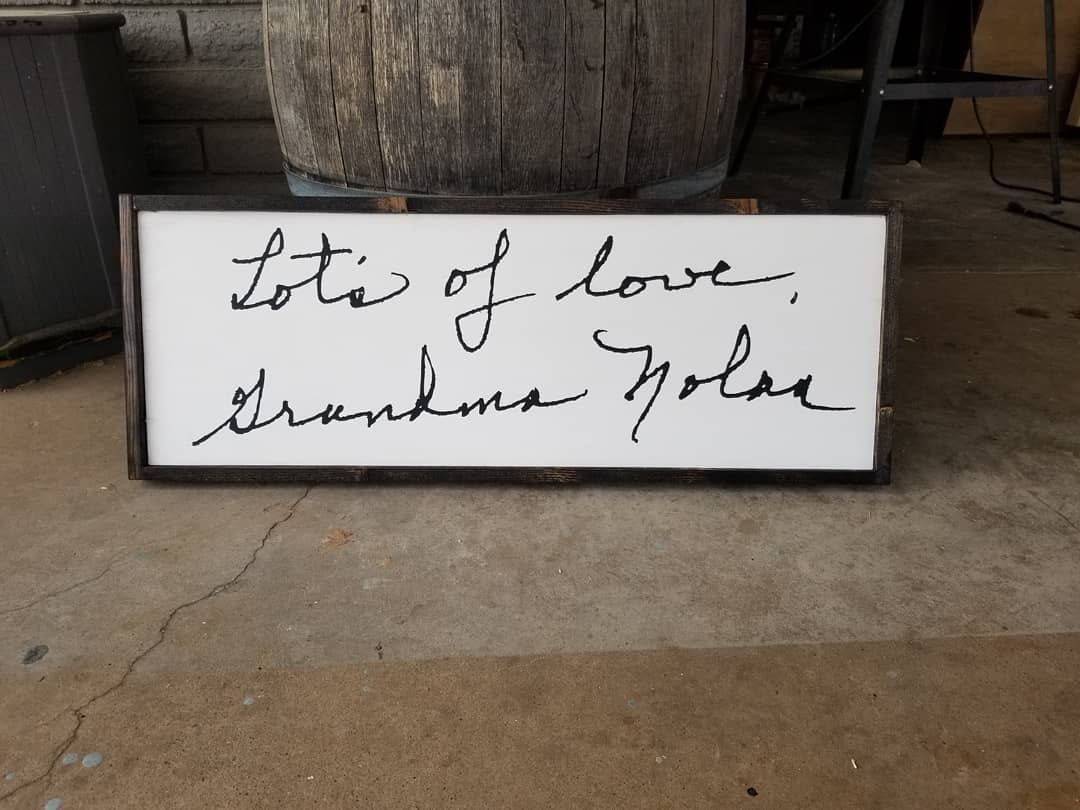 Lot's of love,
Grandma Nolan